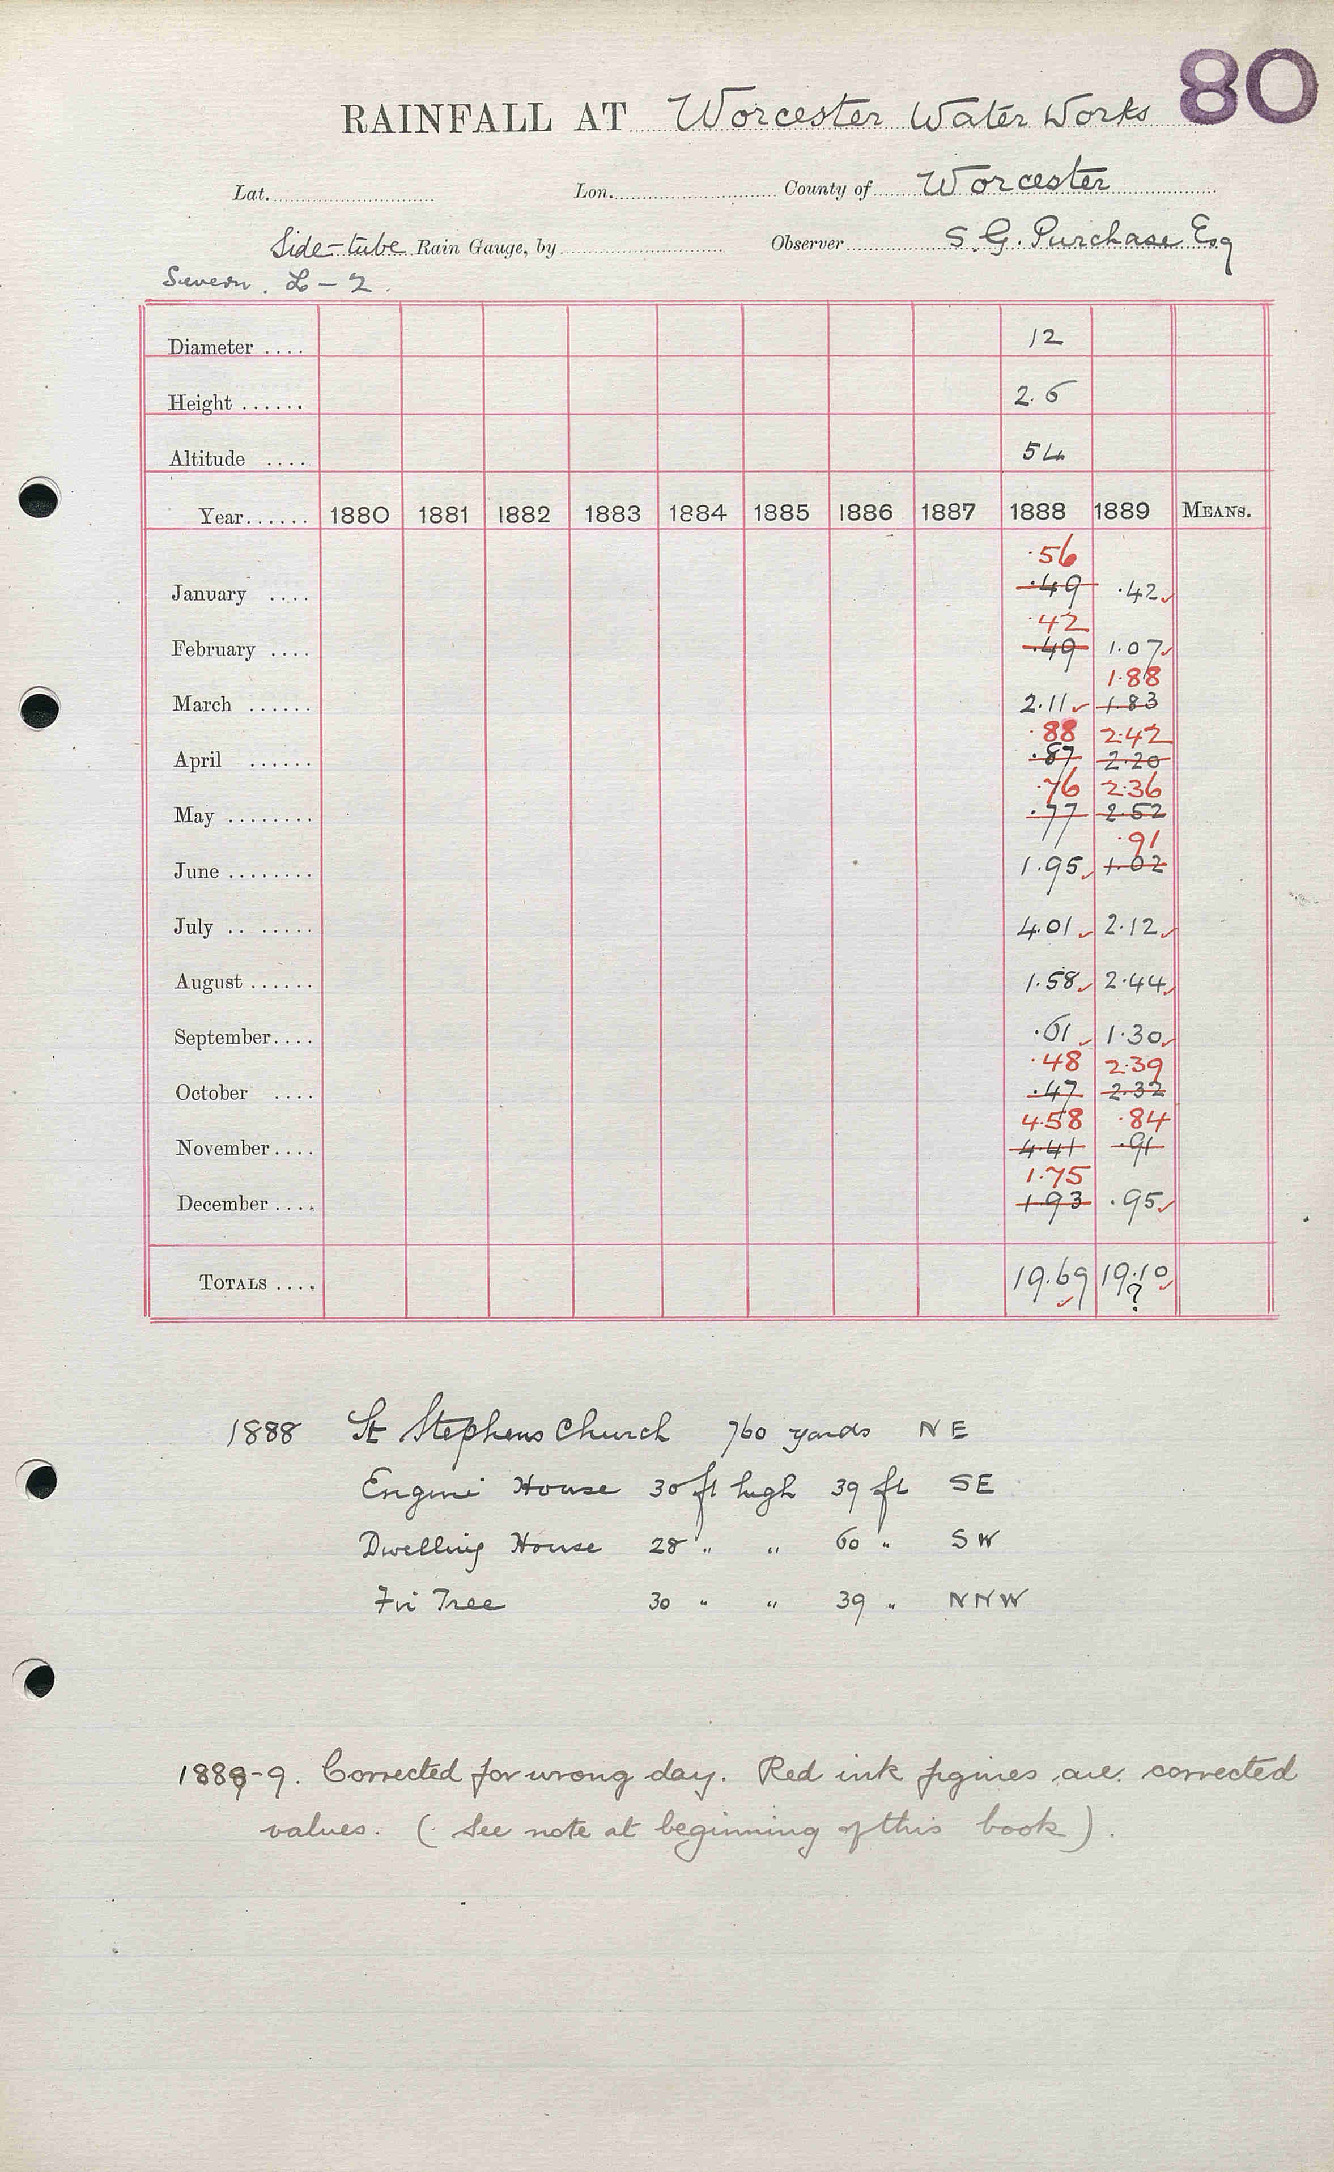 80
RAINFALL AT Worcester Water Works
Lat. Lon. County of Worcester
Side-tube Rain Gauge, by Observer S. G. Purchase Esq
Severn. L-2.
Diameter .... 12
Height ...... 2.6
Altitude .... 54
Year...... 1880 1881 1882 1883 1884 1885 1886 1887 1888 1889 MEANS.
.56
January .... .49 .42
.42
February .... .49 1.07
1.88
March ...... 2.11 1.83
.88 2.42
April ...... .87 2.20
.76 2.36
May ........ .77 2.52
.91
June ........ 1.95 1.02
July .. ..... 4.01 2.12
August ...... 1.58 2.44
September.... .61 1.30
.48 2.39
October .... .47 2.32
4.58 .84
November.... 4.41 .91
1.75
December .... 1.93 .95
TOTALS .... 19.69 19.10
?
1888 St Stephens Church 760 yards NE
Engine House 30 ft high 39 ft SE
Dwelling House 28 " " 60 " SW
Fir Tree 30 " " 39 " NNW
1888-9. Corrected for wrong day. Red ink figures are corrected
values. (See note at beginning of this book).